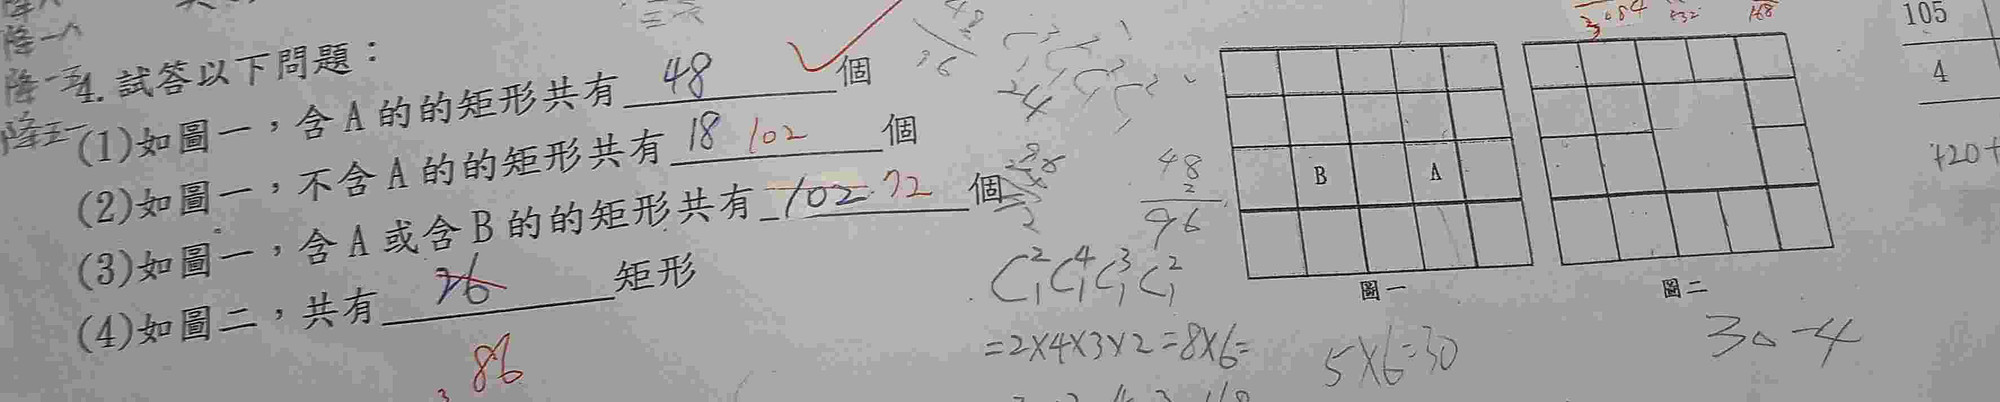 降一
4. 試答以下問題：
(1)如圖一，含 A 的的矩形共有 48 個
(2)如圖一，不含 A 的的矩形共有 18 102 個
(3)如圖一，含 A 或含 B 的的矩形共有 102 72 個
(4)如圖二，共有 26 矩形
86
48
2
96
C₁²C₁⁴C₁³C₁²
=2×4×3×2=8×6=
5×6=30
B A
圖一
圖二
30-4
105
4
+20+